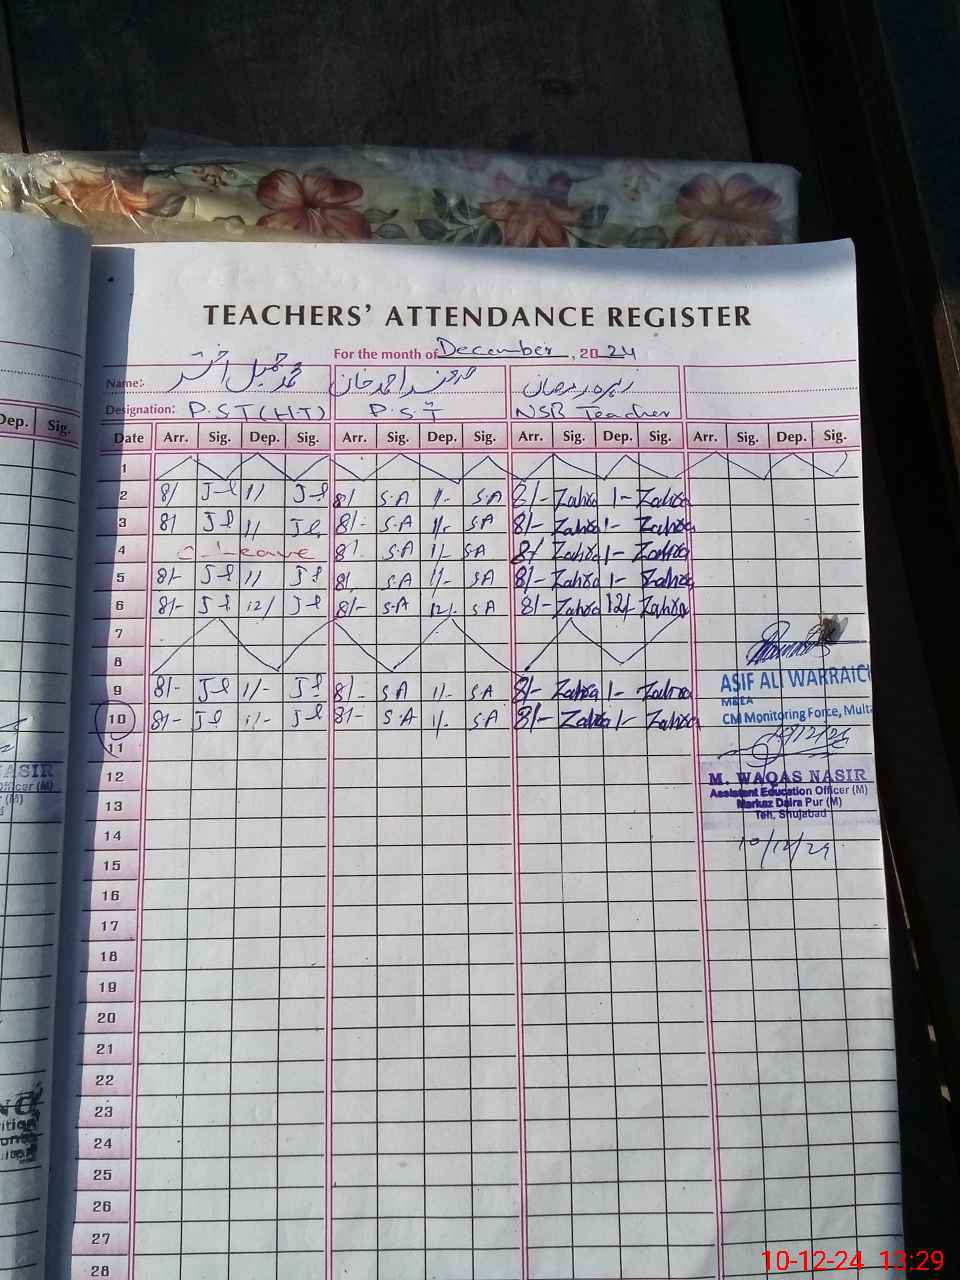 TEACHERS' ATTENDANCE REGISTER
For the month of December, 2024
Name: محمد جمیل اختر احمد خان
Designation: P.S.T (H.T) P.S.T NSB Teacher
Dep. Sig. Date Arr. Sig. Dep. Sig. Arr. Sig. Dep. Sig. Arr. Sig. Dep. Sig. Arr. Sig. Dep. Sig.
1
2 8/ 1/ 8/ S.A 1/- S.A 8/- Zahra 1- Zahra
3 8/ 1/ 8/- S.A 1/- S.A 8/- Zahra 1- Zahra
4 C-Leave 8/- S.A 1/- S.A 8/ Zahra 1- Zahra
5 8/- 1/ 8/- S.A 1/- S.A 8/- Zahra 1- Zahra
6 8/- 12/ 8/- S.A 12/- S.A 8/- Zahra 12/- Zahra
7
8
9 8/- 1/- 8/- S.A 1/- S.A 8/- Zahra 1- Zahra
10 8/- 1/- 8/- S.A 1/- S.A 8/- Zahra 1- Zahra
11
12
13
14
15
16
17
18
19
20
21
22
23
24
25
26
27
28
ASIF ALI WARRAIC
M&EA
CM Monitoring Force, Multa
M. WAQAS NASIR
Assistant Education Officer (M)
Markaz Daira Pur (M)
Teh, Shujabad
10/12/24
NASIR
Officer (M)
(M)
10-12-24 13:29